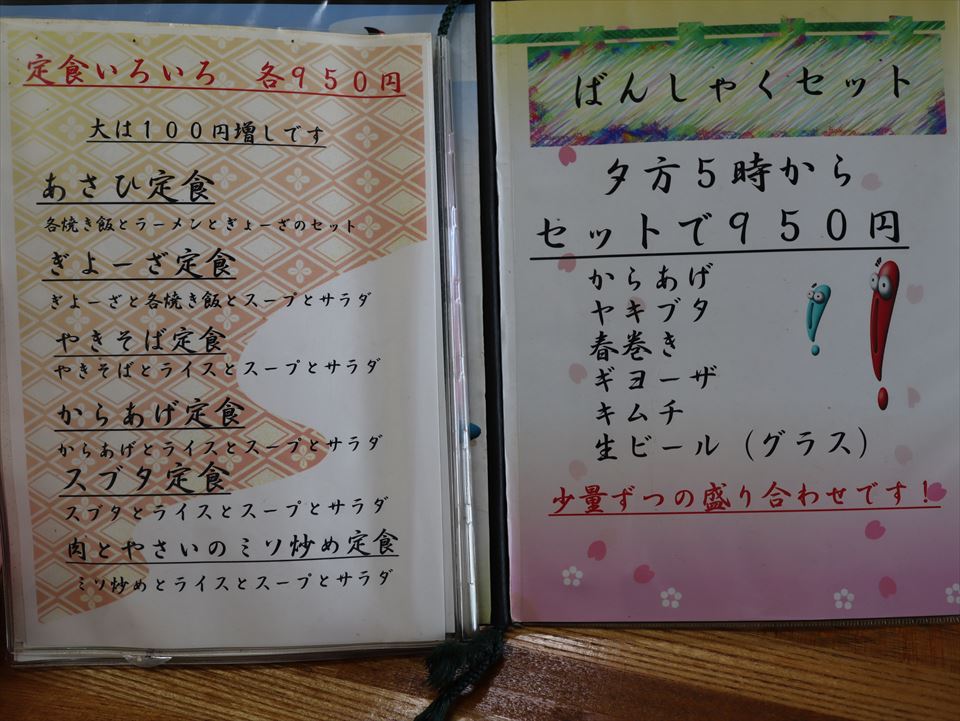 定食いろいろ 各950円
大は100円増しです
あさひ定食
各焼き飯とラーメンとぎょーざのセット
ぎょーざ定食
ぎょーざと各焼き飯とスープとサラダ
やきそば定食
やきそばとライスとスープとサラダ
からあげ定食
からあげとライスとスープとサラダ
スブタ定食
スブタとライスとスープとサラダ
肉とやさいのミソ炒め定食
ミソ炒めとライスとスープとサラダ
ばんしゃくセット
夕方5時から
セットで950円
からあげ
ヤキブタ
春巻き
ギョーザ
キムチ
生ビール(グラス)
少量ずつの盛り合わせです!